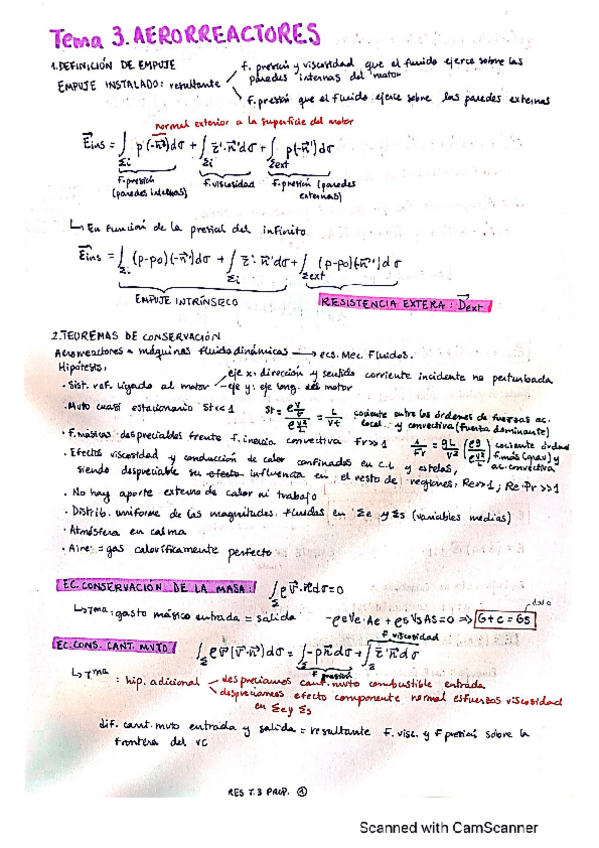 Tema 3. AERORREACTORES
1. DEFINICIÓN DE EMPUJE
EMPUJE INSTALADO: resultante
f. presión y viscosidad que el fluido ejerce sobre las
paredes internas del motor
f. presión que el fluido ejerce sobre las paredes externas
normal exterior a la superficie del motor
E⃗ins = ∫Σi p(-n⃗)dσ + ∫Σi τ̄'·n⃗'dσ + ∫Σext p(-n⃗')dσ
f. presión (paredes internas)
f. viscosidad
f. presión (paredes externas)
↳ En función de la presión del infinito
E⃗ins = ∫Σi (p-po)(-n⃗')dσ + ∫Σi τ̄·n⃗'dσ + ∫Σext (p-po)(-n⃗')dσ
EMPUJE INTRÍNSECO
RESISTENCIA EXTERA: D⃗ext
2. TEOREMAS DE CONSERVACIÓN
Aerorreactores = máquinas fluidodinámicas → ecs. Mec. Fluidos.
Hipótesis:
· Sist. ref. ligado al motor
eje x: dirección y sentido corriente incidente no perturbada
eje y: eje long. del motor
· Mvto cuasi estacionario St<<1
St = (ρ v/t)/(ρ v²/L) = L/Vt cociente entre los órdenes de fuerzas ac.
local y convectiva (fuerza dominante)
· F. másicas despreciables frente f. inercia convectiva Fr>>1
1/Fr = gL/V² (ρg)/(ρv²/L) cociente órdenes
f. más (grav) y
ac. convectiva
· Efectos viscosidad y conducción de calor confinados en c.l y estelas,
siendo despreciable su influencia en el resto de regiones, Re>>1; Re·Pr>>1
· No hay aporte externo de calor ni trabajo
· Distrib. uniforme de las magnitudes fluidas en Σe y Σs (variables medias)
· Atmósfera en calma
· Aire = gas caloríficamente perfecto
EC. CONSERVACIÓN DE LA MASA: ∫Σ ρv⃗·n⃗dσ=0
↳ Tma: gasto másico entrada = salida -ρeVe·Ae + ρsVsAs=0 => G+c = Gs
EC. CONS. CANT. MVTO ∫Σ ρv⃗(v⃗·n⃗)dσ = ∫Σ -pn⃗dσ + ∫Σ τ̄'n⃗dσ
f. presión
f. viscosidad
↳ Tma: hip. adicional
despreciamos cant. mvto combustible entrada
despreciamos efecto componente normal esfuerzos viscosidad
en Σe y Σs
dif. cant. mvto entrada y salida = resultante f. visc. y f presión sobre la
frontera del VC
RES T.3 PROP. ①
Scanned with CamScanner